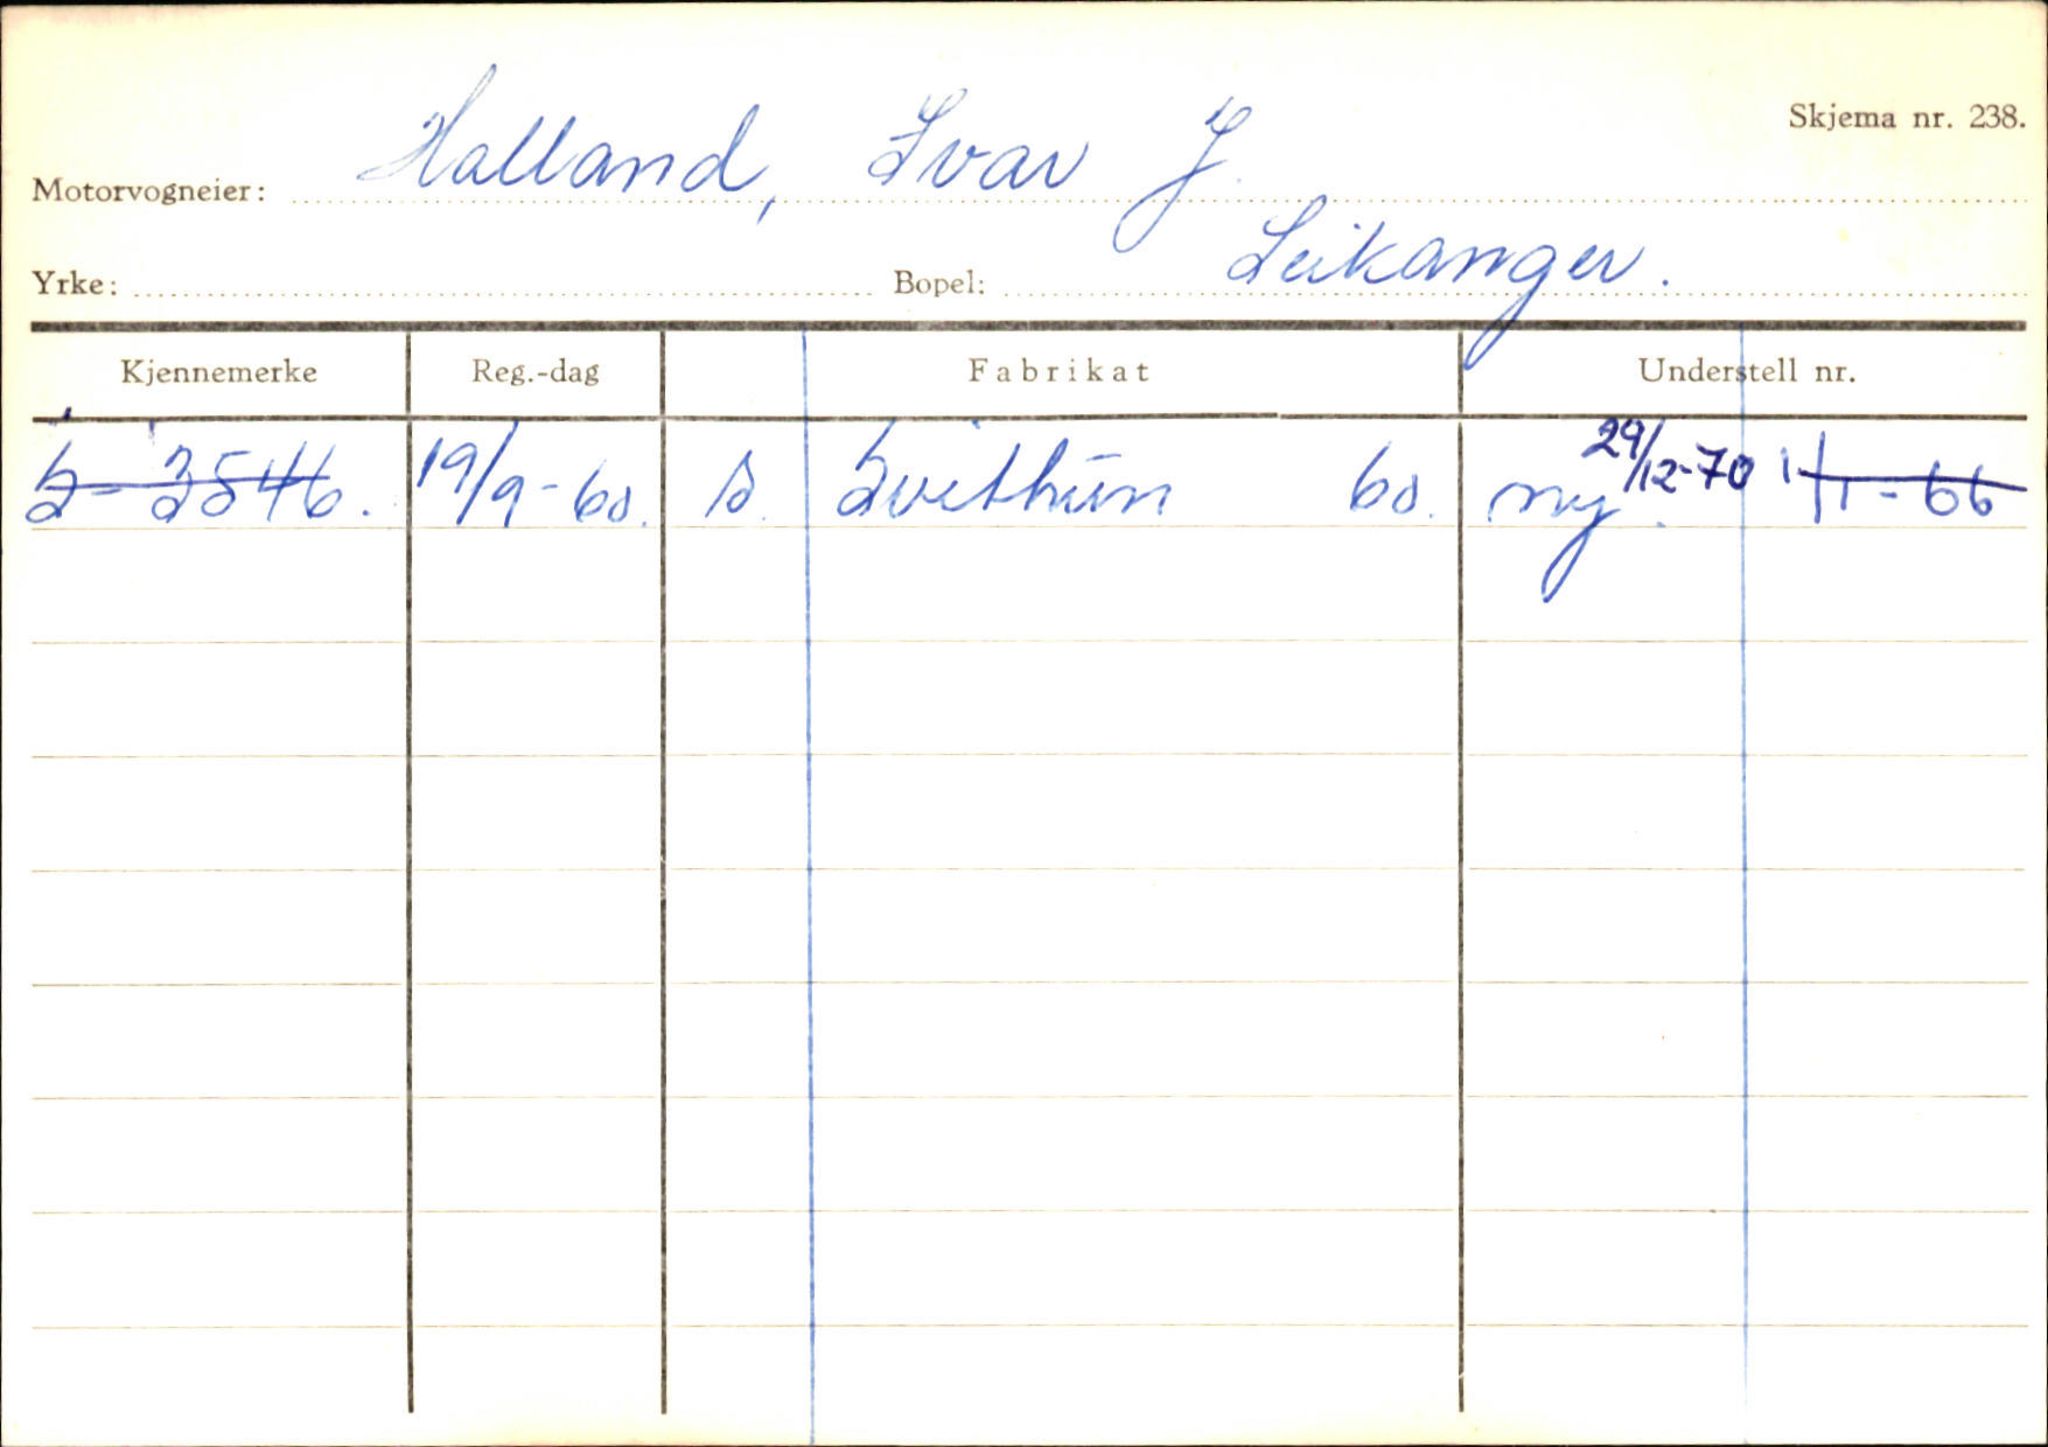 Skjema nr. 238.
Motorvogneier: Halland, Ivar J.
Yrke: Bopel: Leikanger.
Kjennemerke Reg.-dag Fabrikat Understell nr.
S- 3546. 19/9-60. s. Svithun 60. ny. 29/12-70 1/1-66